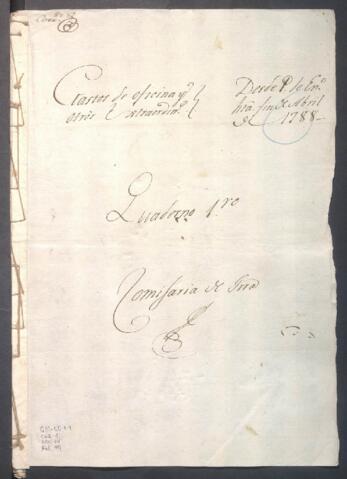 Cartas de oficina y
otros extraordin.s
Desde 1.º de En.º
hta fin de Abril
de 1788
Quaderno 1.ro
Comisaria de Grra